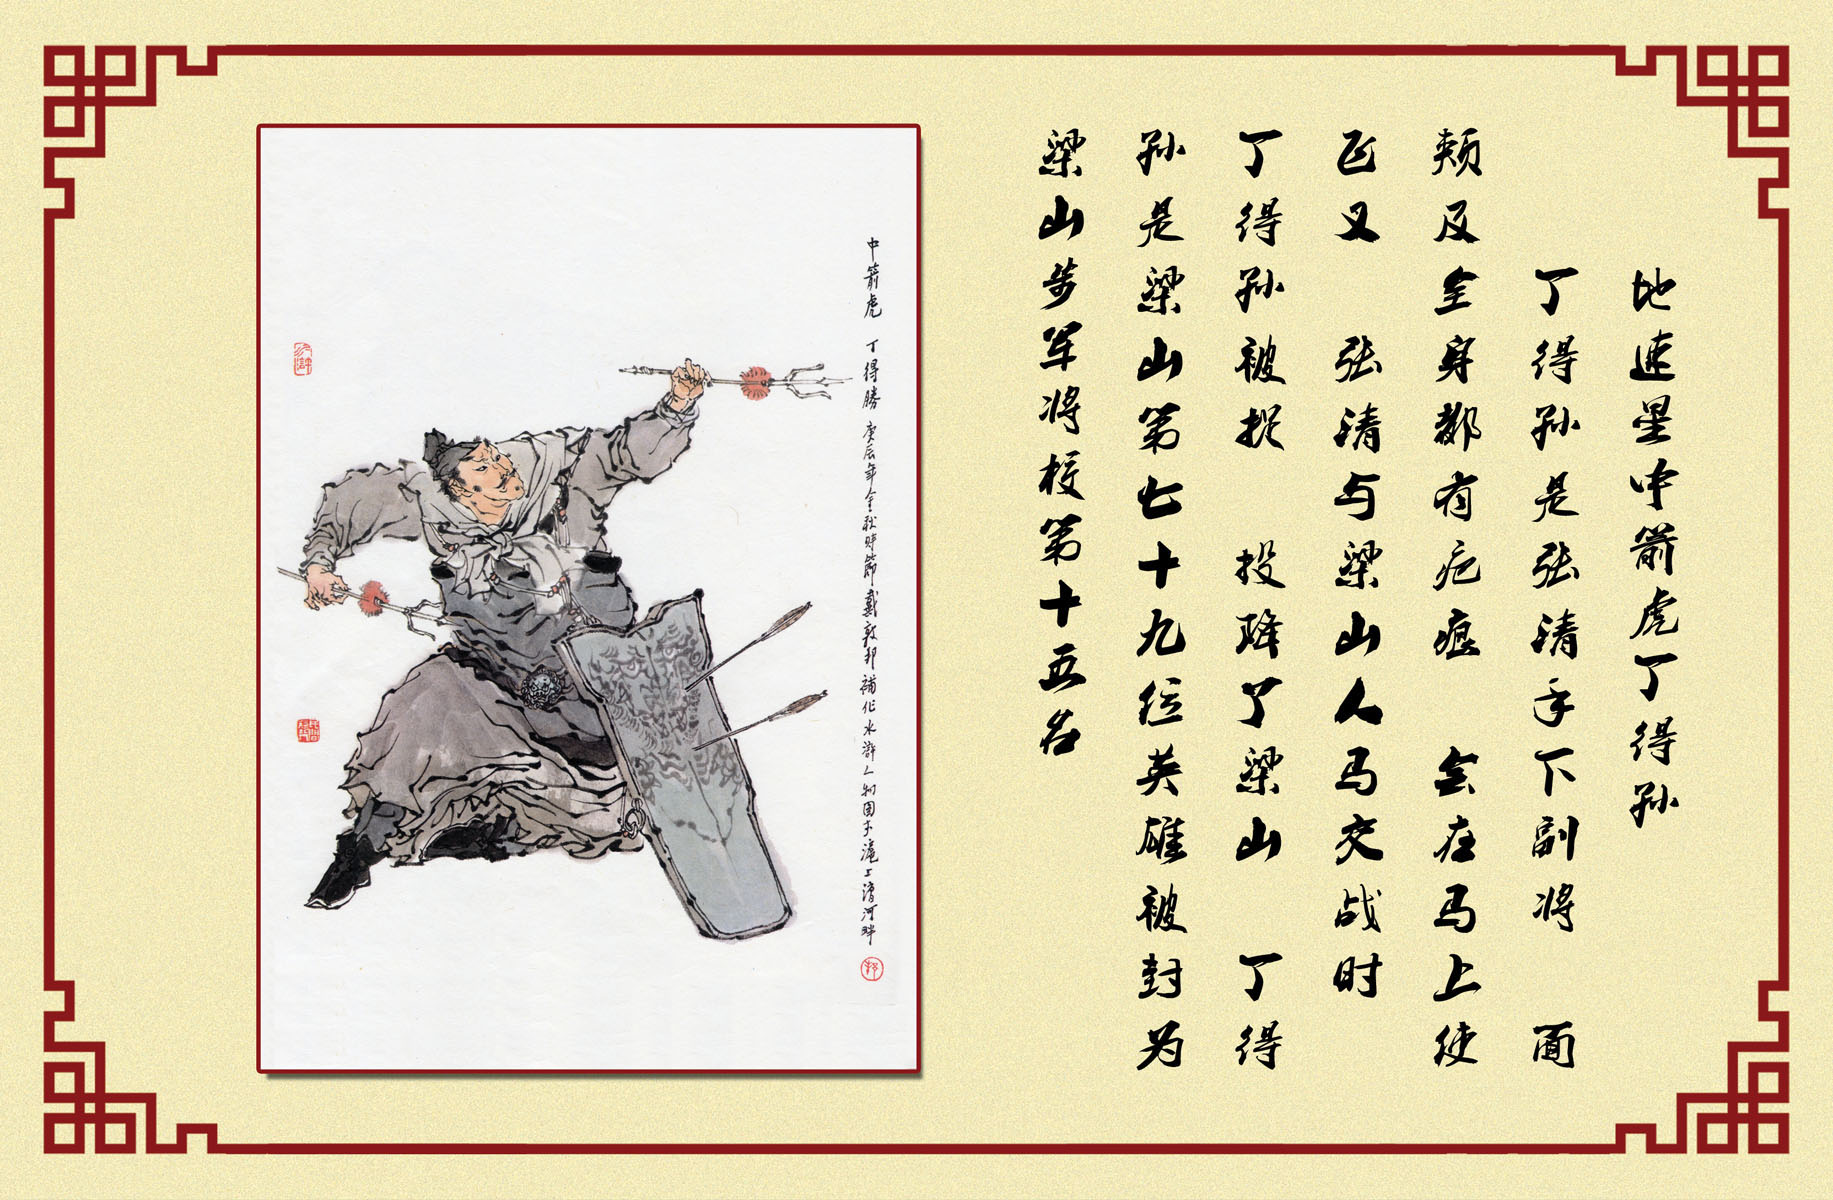 地速星中箭虎丁得孙
丁得孙是张清手下副将 面
颊及全身都有疤痕 会在马上使
飞叉 张清与梁山人马交战时
丁得孙被捉 投降了梁山 丁得
孙是梁山第七十九位英雄被封为
梁山步军将校第十五名
中箭虎 丁得勝 庚辰年金秋時節戴敦邦補作水滸人物圖于滬上漕河畔